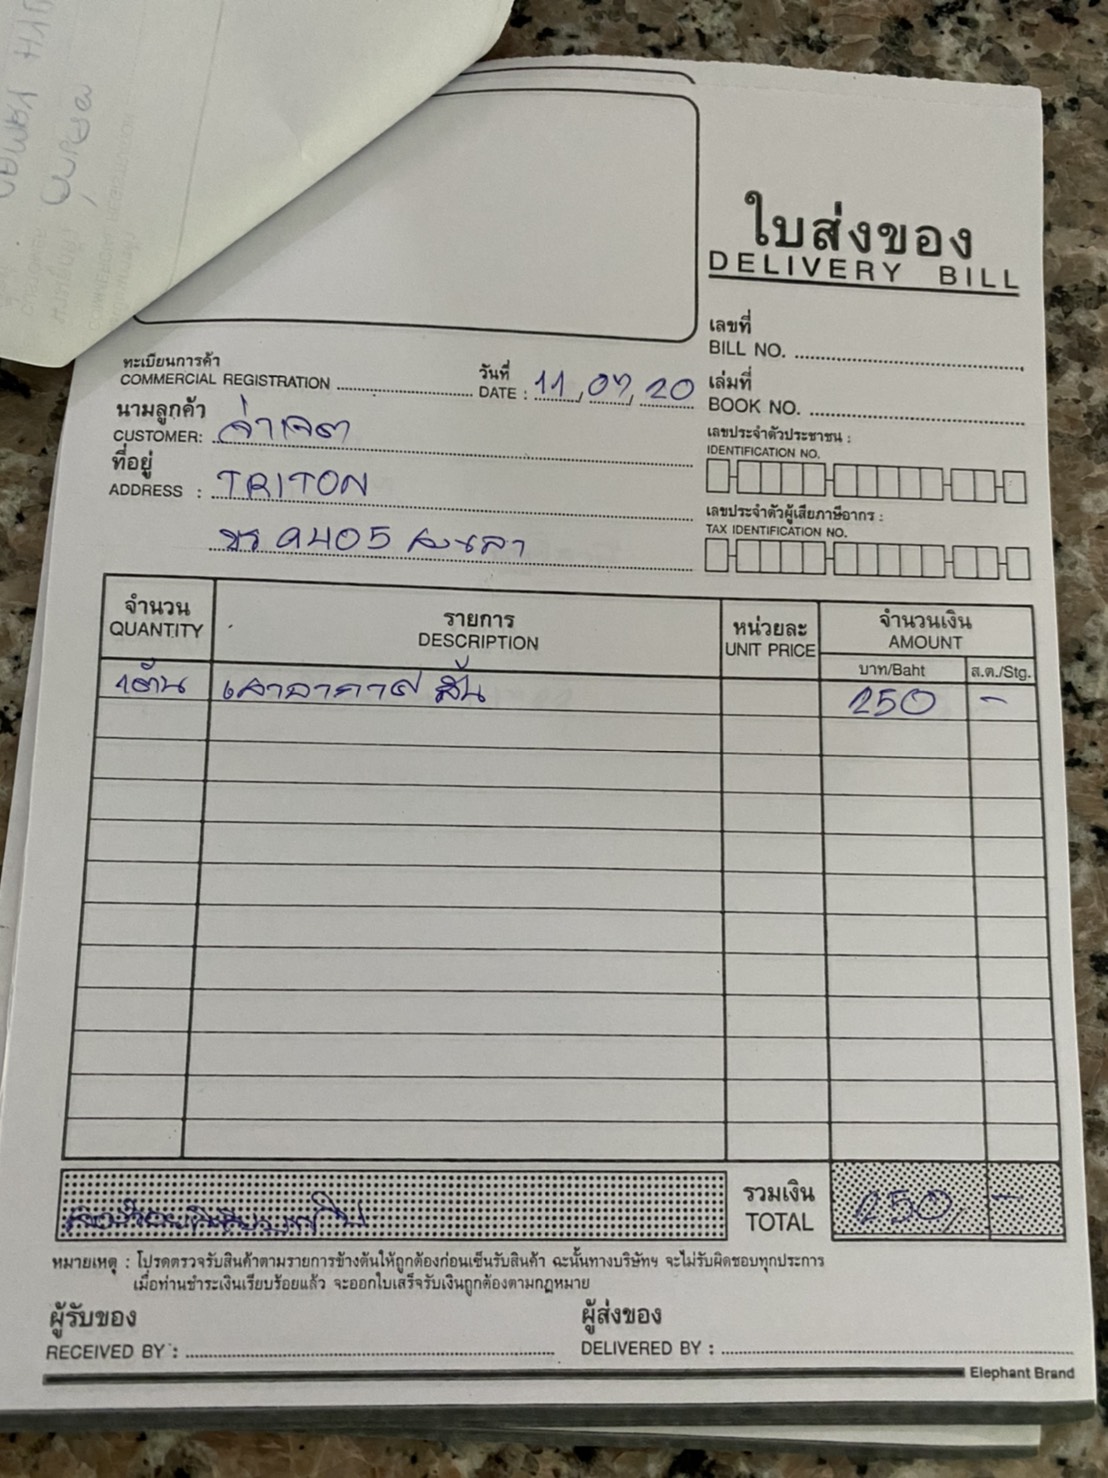 ใบส่งของ
DELIVERY BILL
เลขที่
BILL NO.
ทะเบียนการค้า
COMMERCIAL REGISTRATION
วันที่
DATE : 11, 07, 20
เล่มที่
BOOK NO.
นามลูกค้า
CUSTOMER: จ่าเจต
เลขประจำตัวประชาชน :
IDENTIFICATION NO.
ที่อยู่
ADDRESS : TRITON
เลขประจำตัวผู้เสียภาษีอากร :
TAX IDENTIFICATION NO.
9405 สงขลา
จำนวน
QUANTITY
รายการ
DESCRIPTION
หน่วยละ
UNIT PRICE
จำนวนเงิน
AMOUNT
บาท/Baht
ส.ต./Stg.
1ต้น เสาอากาศ สั้น 250 -
รวมเงิน
TOTAL
250 -
หมายเหตุ : โปรดตรวจรับสินค้าตามรายการข้างต้นให้ถูกต้องก่อนเซ็นรับสินค้า ฉะนั้นทางบริษัทฯ จะไม่รับผิดชอบทุกประการ
เมื่อท่านชำระเงินเรียบร้อยแล้ว จะออกใบเสร็จรับเงินถูกต้องตามกฎหมาย
ผู้รับของ
RECEIVED BY :
ผู้ส่งของ
DELIVERED BY :
Elephant Brand